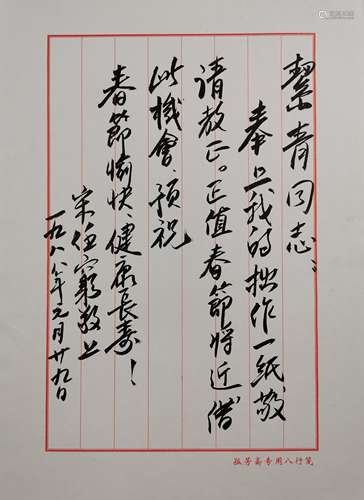 絜青同志：
奉上我的拙作一纸敬
请教正。正值春節将近借
此機會、预祝
春節愉快、健康長壽！
宋任窮敬上
一九八八年元月廿九日
笺行八用专斋芳